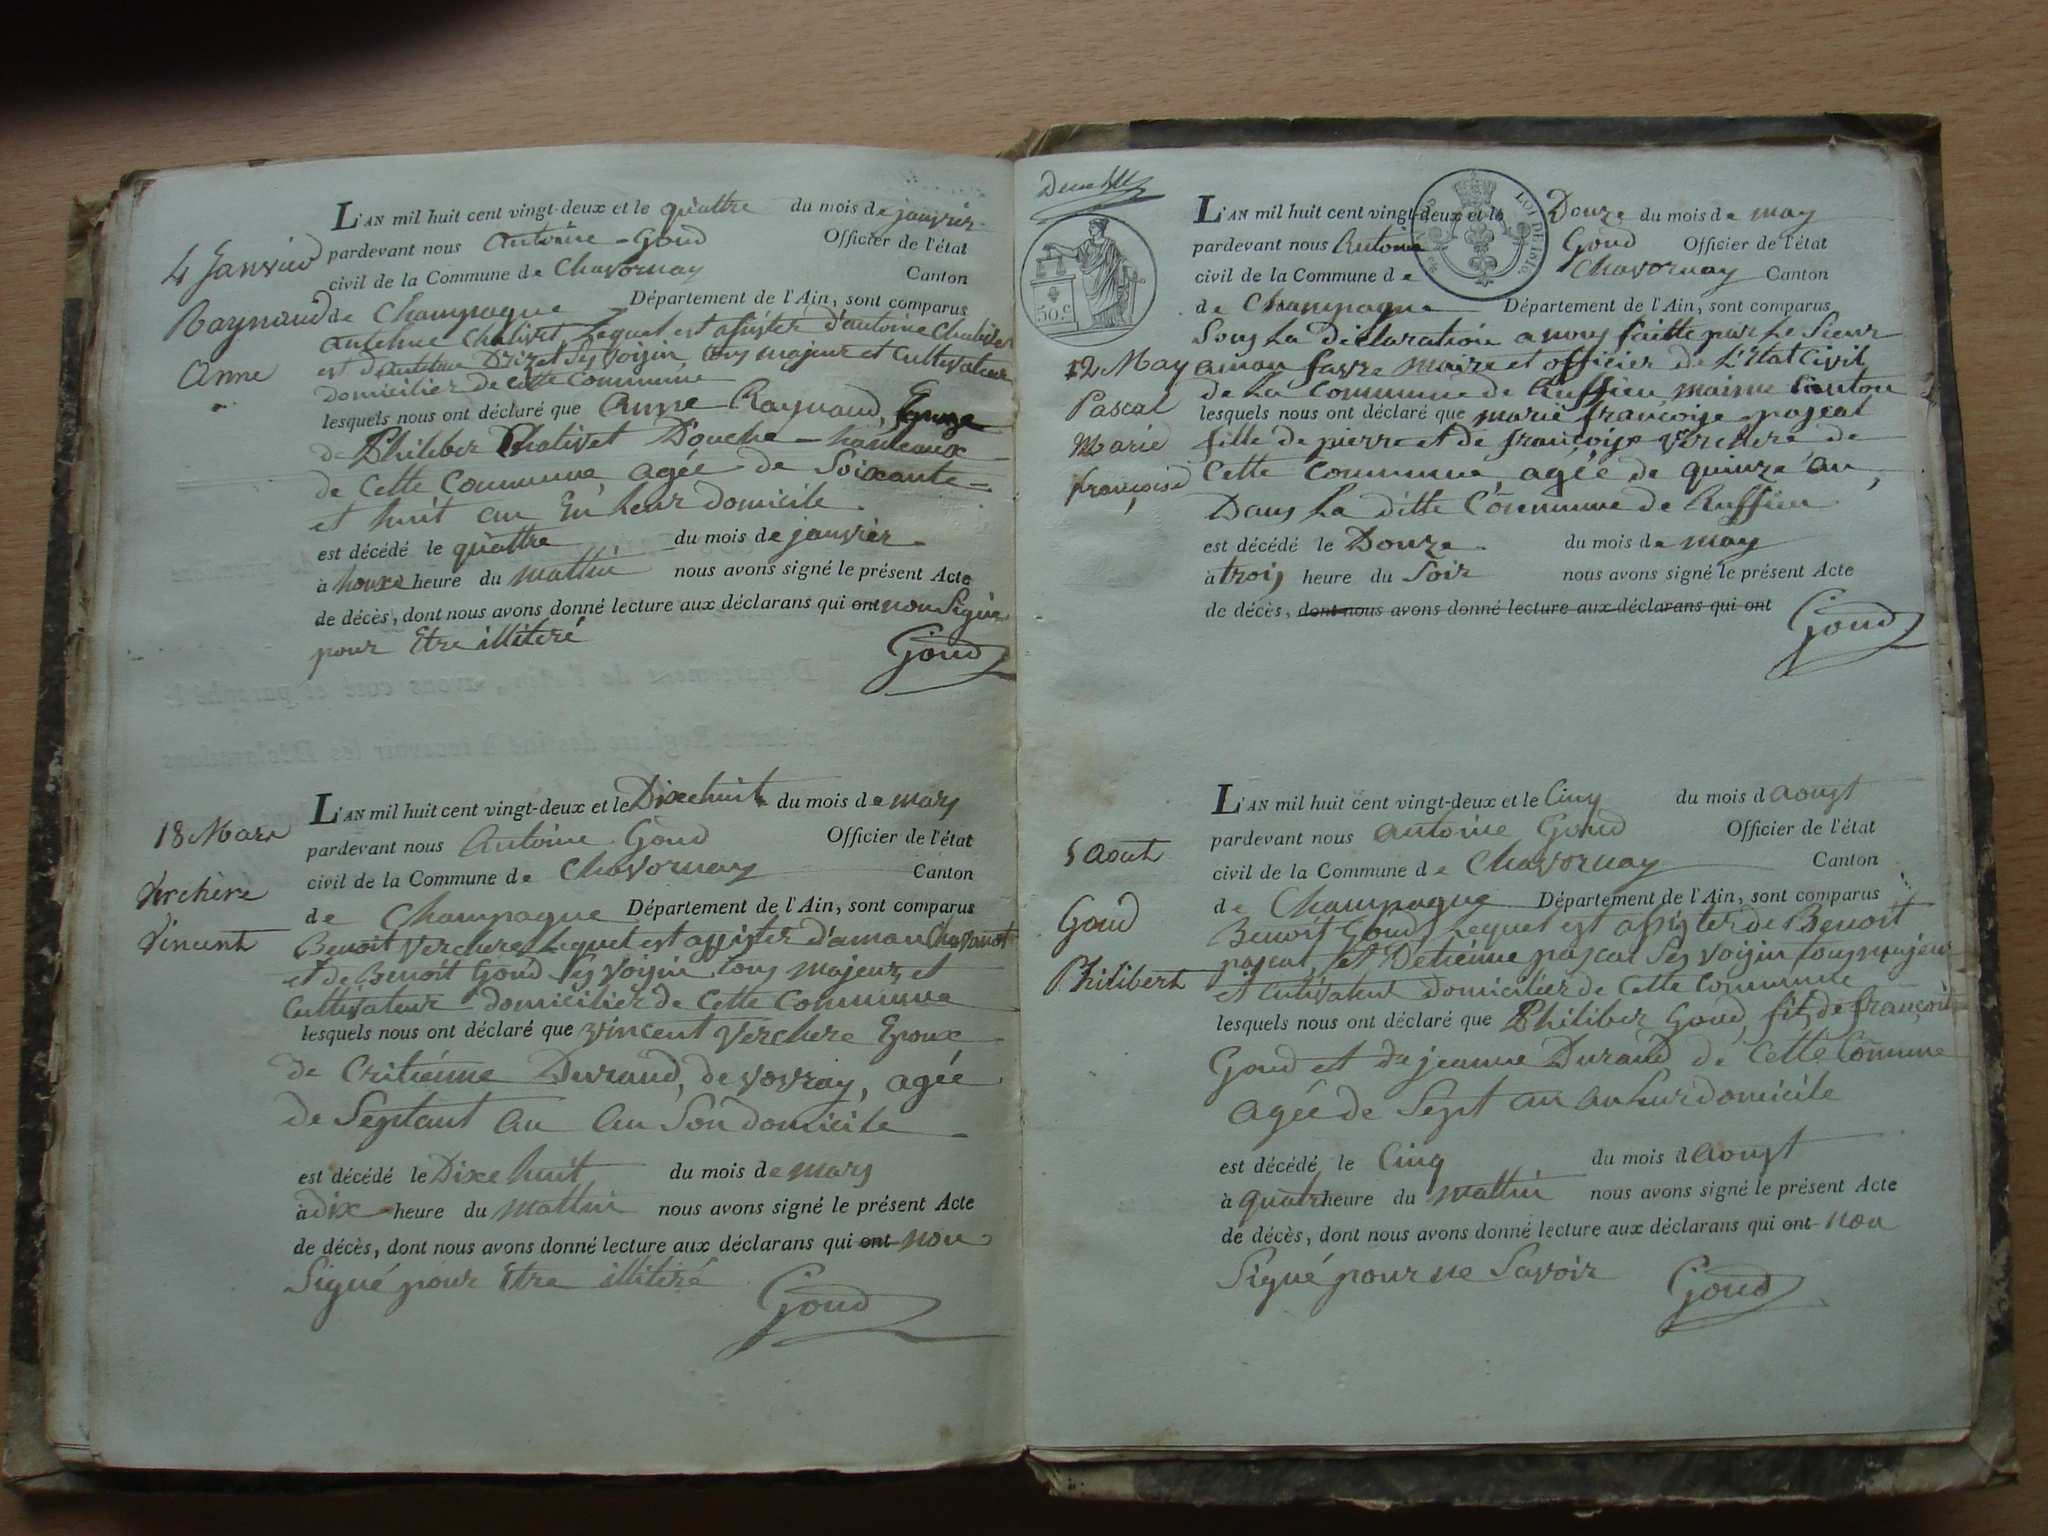 4 Janvier
Raynaud
Anne
L'AN mil huit cent vingt-deux et le quattre du mois de janvier
pardevant nous Antoine Goud Officier de l'état
civil de la Commune de Chavornay Canton
de Champagne Département de l'Ain, sont comparus
lequel est assister d'antoine
voisin tous majeur et Cultivateur
domicilier de cette Commune
lesquels nous ont déclaré que Anne Raynaud,
de Philiber Chalivet
de Cette Commune, agée de Soixante=
et huit an En leur domicile
est décédé le quattre du mois de janvier
à heure du mattin nous avons signé le présent Acte
de décès, dont nous avons donné lecture aux déclarans qui ont non Signé
pour Etre illitéré
Goud
18 Mars
Verchère
Vincent
L'AN mil huit cent vingt-deux et le Dixehuit du mois de mars
pardevant nous Antoine Goud Officier de l'état
civil de la Commune de Chavornay Canton
de Champagne Département de l'Ain, sont comparus
Benoit Verchere Lequel est assister d'aman
et de Benoit Goud Ses voisin tous majeur et
Cultivateur domicilier de Cette Commune
lesquels nous ont déclaré que vincent verchere Epoux
de Critiénne Durand, de vovray, agée
de Septant an au Son domicile
est décédé le Dixe huit du mois de mars
à dix heure du mattin nous avons signé le présent Acte
de décès, dont nous avons donné lecture aux déclarans qui ont non
Signé pour Etre illitéré
Goud
30 c.
LOI DE 1816
12 May
Pascal
Marie
françoise
L'AN mil huit cent vingt-deux et le Douze du mois de may
pardevant nous Antoine Goud Officier de l'état
civil de la Commune de Chavornay Canton
de Champagne Département de l'Ain, sont comparus
Sous La déclaration a nous faitte par Le Sieur
aman favre maire et officier de L'Etat Civil
de La Commune de Ruffieu maime Canton
lesquels nous ont déclaré que marie françoise pascal
fille de pierre et de françoise verchere de
Cette Commune, agée de quinze an,
Dans La ditte Commune de Ruffieu
est décédé le Douze du mois de may
à trois heure du Soir nous avons signé le présent Acte
de décès, dont nous avons donné lecture aux déclarans qui ont
Goud
5 Aout
Goud
Philibert
L'AN mil huit cent vingt-deux et le Cinq du mois d aoust
pardevant nous antoine Goud Officier de l'état
civil de la Commune de Chavornay Canton
de Champagne Département de l'Ain, sont comparus
Benoit Goud, Lequel est assister de Benoit
pascal, et Detiénne pascal Ses voisin tous majeur
et cultivateur domicilier de Cette Commune
lesquels nous ont déclaré que Philiber Goud, fils de françois
Goud et de jeanne Durand de Cette Commune
agée de Sept an au Leur domicile
est décédé le Cinq du mois d aoust
à quatre heure du mattin nous avons signé le présent Acte
de décès, dont nous avons donné lecture aux déclarans qui ont non
Signé pour ne Savoir
Goud